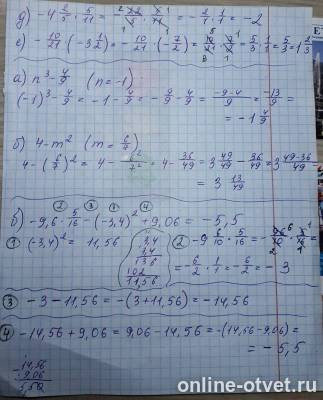 д) -4 2/5 · 5/11 = -22/5 · 5/11 = -2/1 · 1/1 = -2
е) -10/21 · (-3 1/2) = -10/21 · (-7/2) = 10/21 · 7/2 = 5/3 · 1/1 = 5/3 = 1 2/3
а) n³ - 4/9 (n = -1)
(-1)³ - 4/9 = -1 - 4/9 = -9/9 - 4/9 = (-9-4)/9 = -13/9 =
= -1 4/9
б) 4 - m² (m = 6/7)
4 - (6/7)² = 4 - 6²/7² = 4 - 36/49 = 3 49/49 - 36/49 = 3 (49-36)/49
= 3 13/49
② ③ ① ④
в) -9,6 · 5/16 - (-3,4)² + 9,06 = -5,5
① (-3,4)² = 11,56
3,4
3,4
136
102
11,56
② -9 6/10 · 5/16 = -96/10 · 5/16 =
= -6/2 · 1/1 = -6/2 = -3
③ -3 - 11,56 = -(3+11,56) = -14,56
④ -14,56 + 9,06 = 9,06 - 14,56 = -(14,56 - 9,06) =
= -5,5
14,56
9,06
5,50
online-otvet.ru